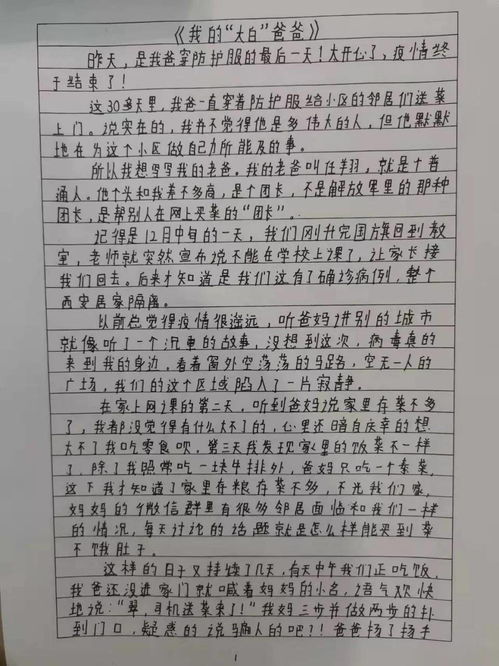 《我的“大白”爸爸》
昨天，是我爸穿防护服的最后一天！太开心了，疫情终
于结束了！
这30多天里，我爸一直穿着防护服给小区的邻居们送菜
上门。说实在的，我并不觉得他是多伟大的人，但他默默
地在为这个小区做自己力所能及的事。
所以我想写写我的老爸。我的老爸叫任羽，就是个普
通人。他个头和我差不多高，是个团长，不是解放军里的那种
团长，是帮别人在网上买菜的“团长”。
记得是12月中旬的一天，我们刚升完国旗回到教
室，老师就突然宣布说不能在学校上课了，让家长接
我们回去。后来才知道是我们这有了确诊病例，整个
西安居家隔离。
以前总觉得疫情很遥远，听爸妈讲别的城市
就像听了一个沉重的故事，没想到这次，病毒真的
来到我的身边，看着窗外空荡荡的马路，空无一人的
广场，我们的这个区域陷入了一片寂静。
在家上网课的第二天，听到爸妈说家里存菜不多
了，我都没觉得有什么大不了的，心里还暗自庆幸的想
大不了我吃零食呗，第三天我发现家里的饭菜不一样
了，除了我照常吃一块牛排外，爸妈只吃一个素菜，
这下我才知道了家里存粮存菜不多，不光我们家，
妈妈的微信群里有很多邻居面临和我们一样
的情况，每天讨论的话题就是怎么样能买到菜
不饿肚子。
这样的日子又持续了几天，有天中午我们正吃饭，
我爸还没进家门就喊着妈妈的小名，语气欢快
地说：“翠，司机送菜来了！”我妈三步并做两步的扑
到门口，疑惑的说骗人的吧？！爸爸扬了扬手
1